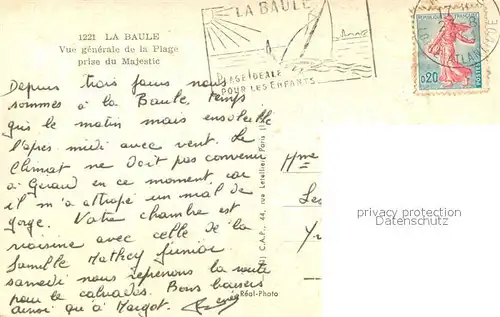 1221 LA BAULE
Vue générale de la Plage
prise du Majestic
LA BAULE
PLAGE IDEALE
POUR LES ENFANTS
REPUBLIQUE FRANCAISE
0,20
POSTES
Depuis trois jours nous
sommes à la Baule, temps
gris le matin mais ensoleillé
l'après midi avec vent. Le
Climat ne doit pas convenir
à en ce moment car
il m'a attrapé un mal de
gorge. Votre chambre est
voisine avec celle de la
famille Mathey junior.
samedi nous reprenons la route
pour le calvados. Bons baisers
ainsi qu'à Margot.
C.A.P., 44, rue Letellier, Paris
Réal-Photo
Mme
privacy protection
Datenschutz